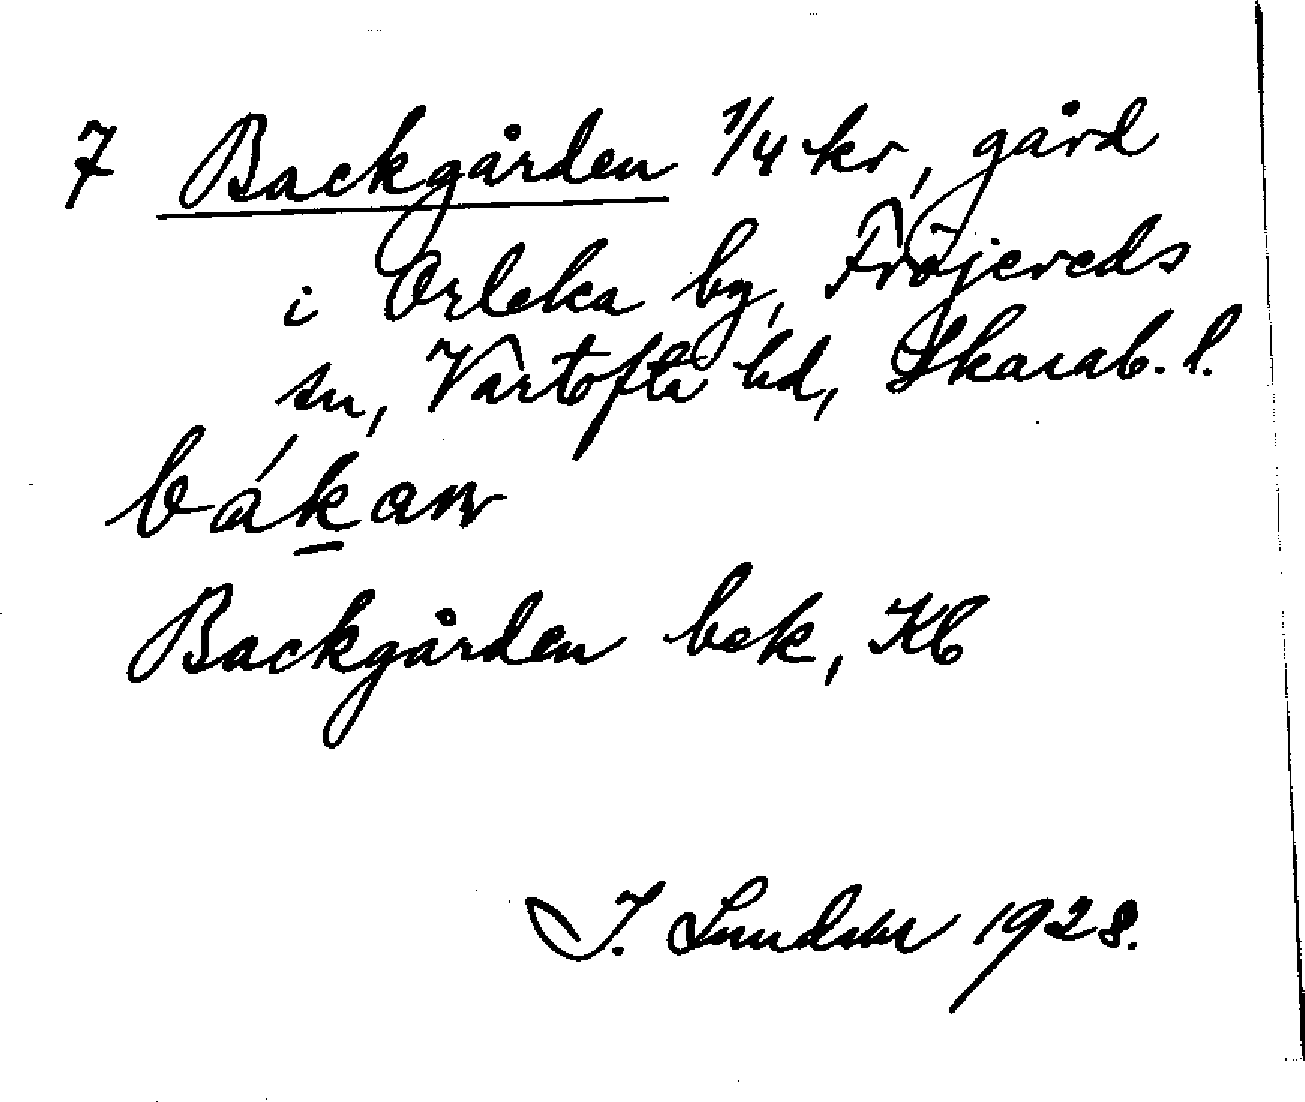 7 Backgården 1/4 kr, gård
i Orleka by, Fröjereds
sn, Vartofta hd, Skarab. l.
bákan
Backgården bek, Kb
J. Lundahl 1928.